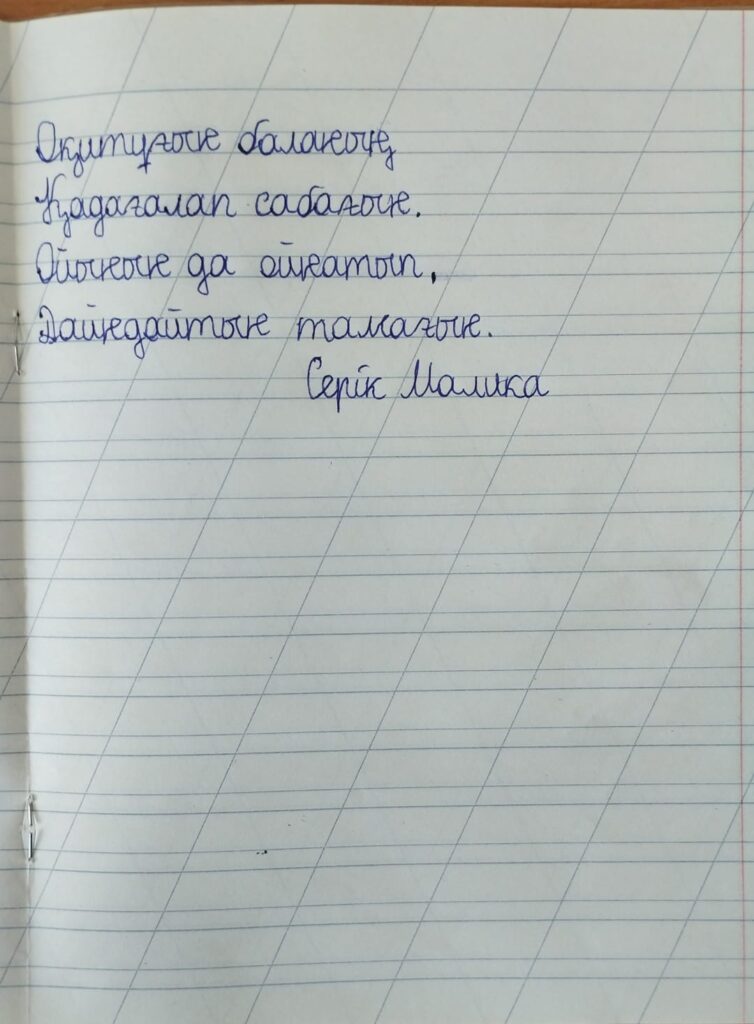 Оқитуғын баланың
Қадағалап сабағын.
Ойынын да ойнатып,
Дайндайтын тамағын.
Серік Малика